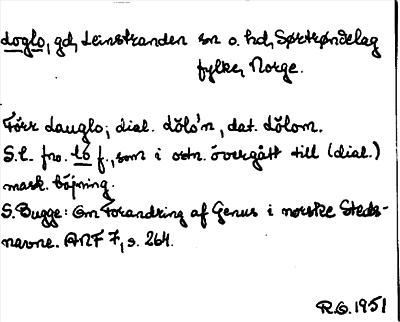 doglo, gd, Leinstranden sn o. hd, Sørtrøndelag
fylke, Norge.
Förr dauglo; dial. dölo'n, dat. dölom.
S.l. fno. ló f., som i ostn. övergått till (dial.)
mask. böjning.
S. Bugge: Om Forandring af Genus i norske Steds-
navne. ANF 7, s. 264.
R.O. 1951